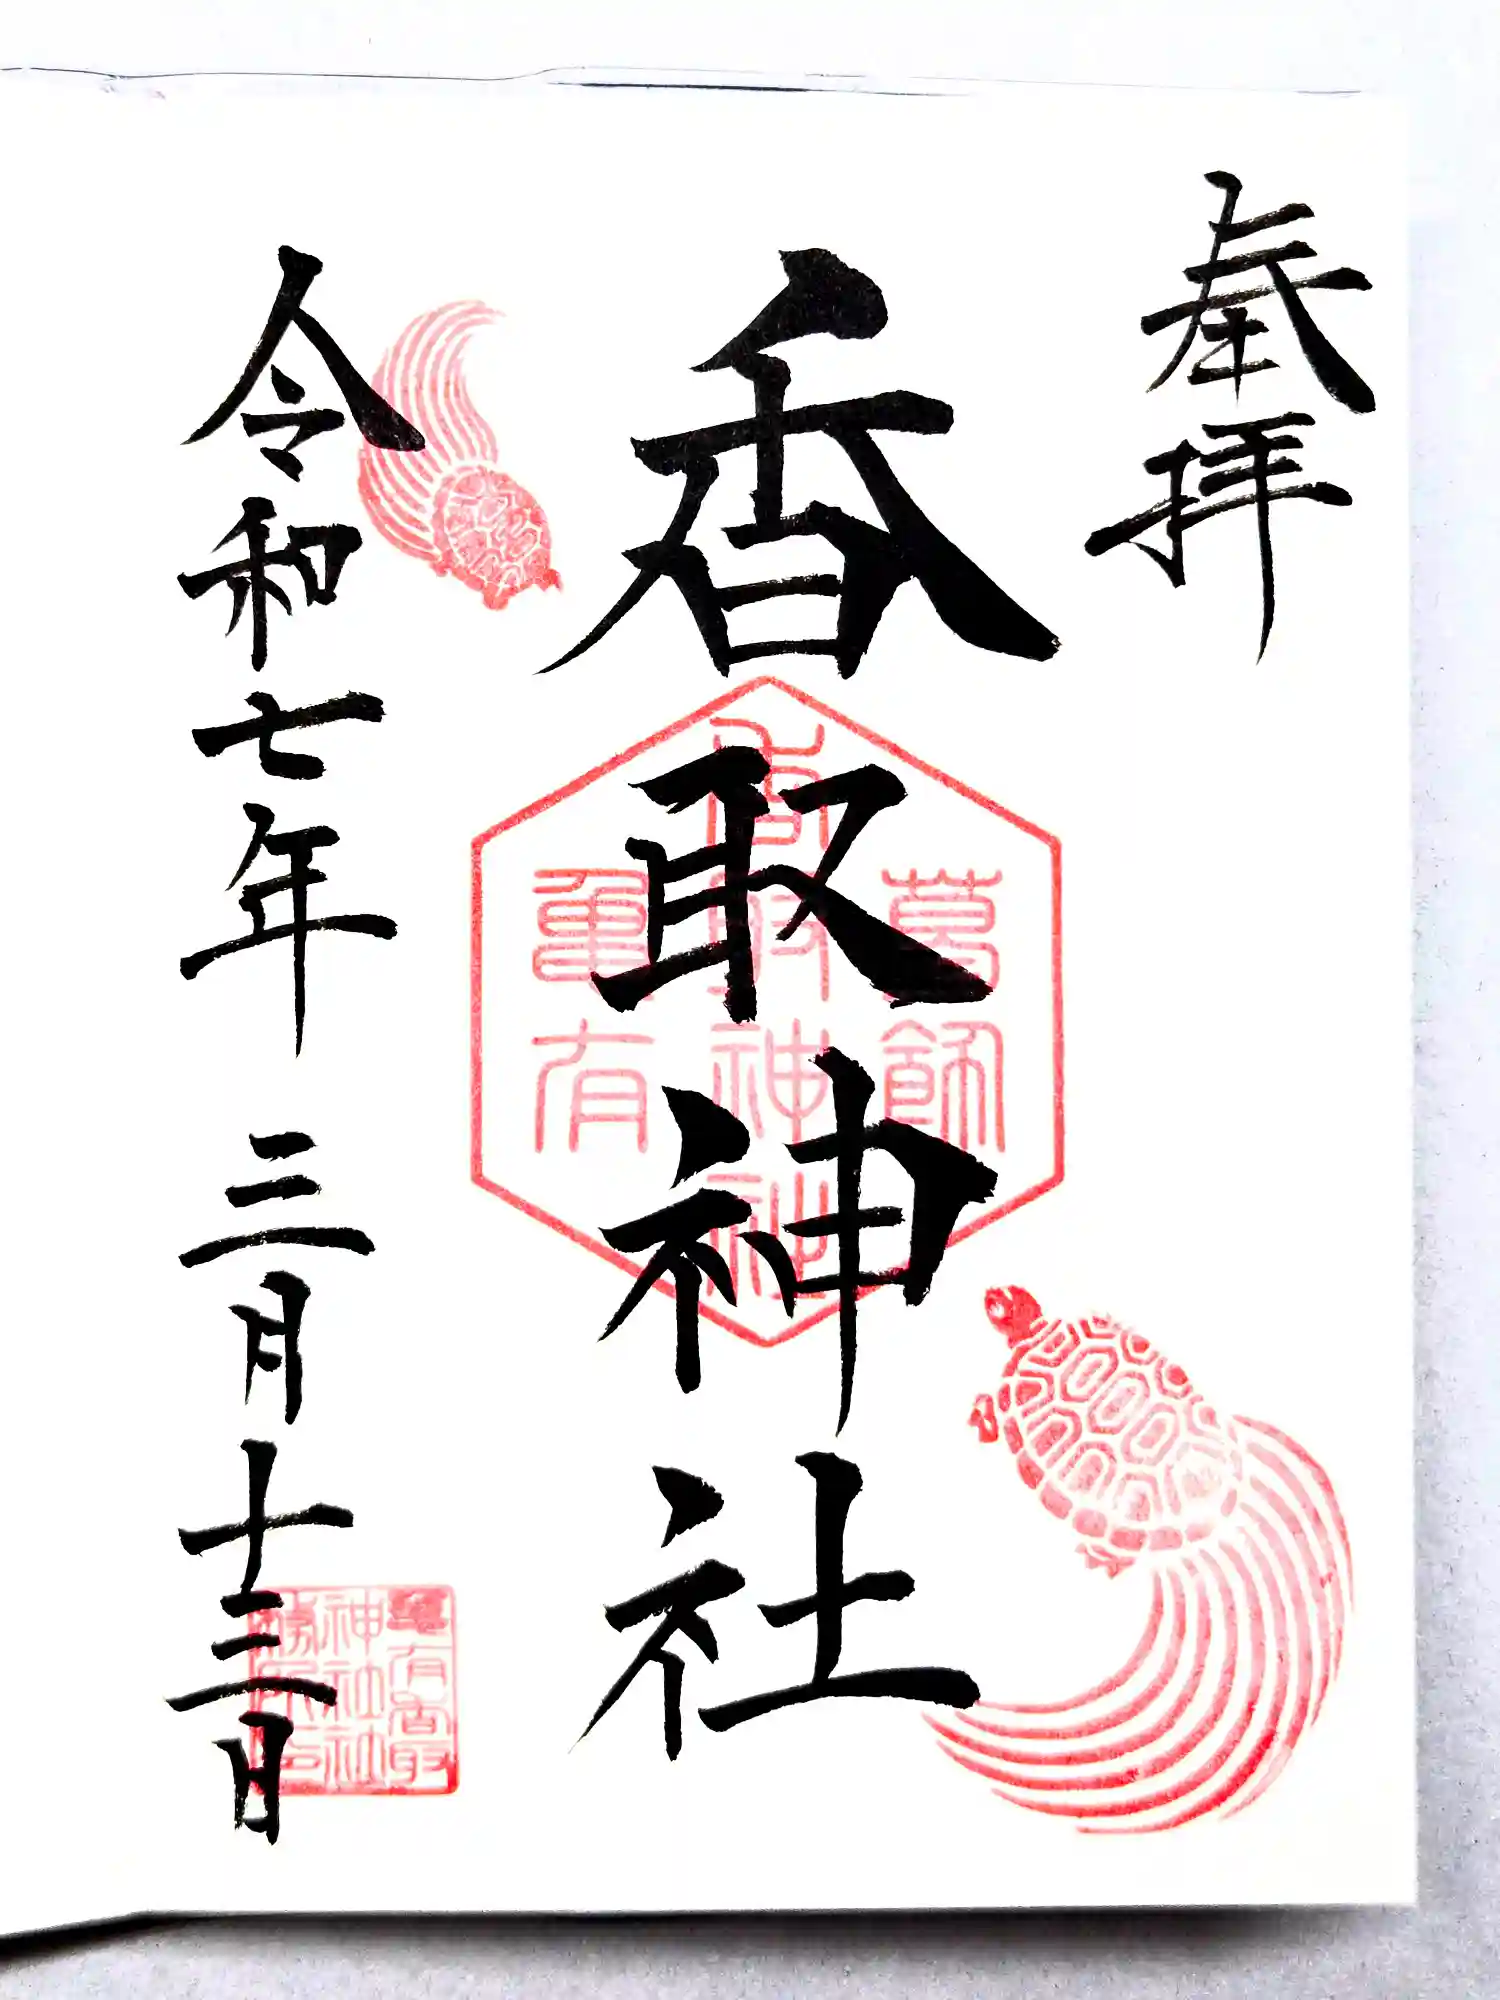 奉拝
香取神社
葛飾
香取神社
亀有
令和七年 三月 十三日
亀有香取
神社社
務所印